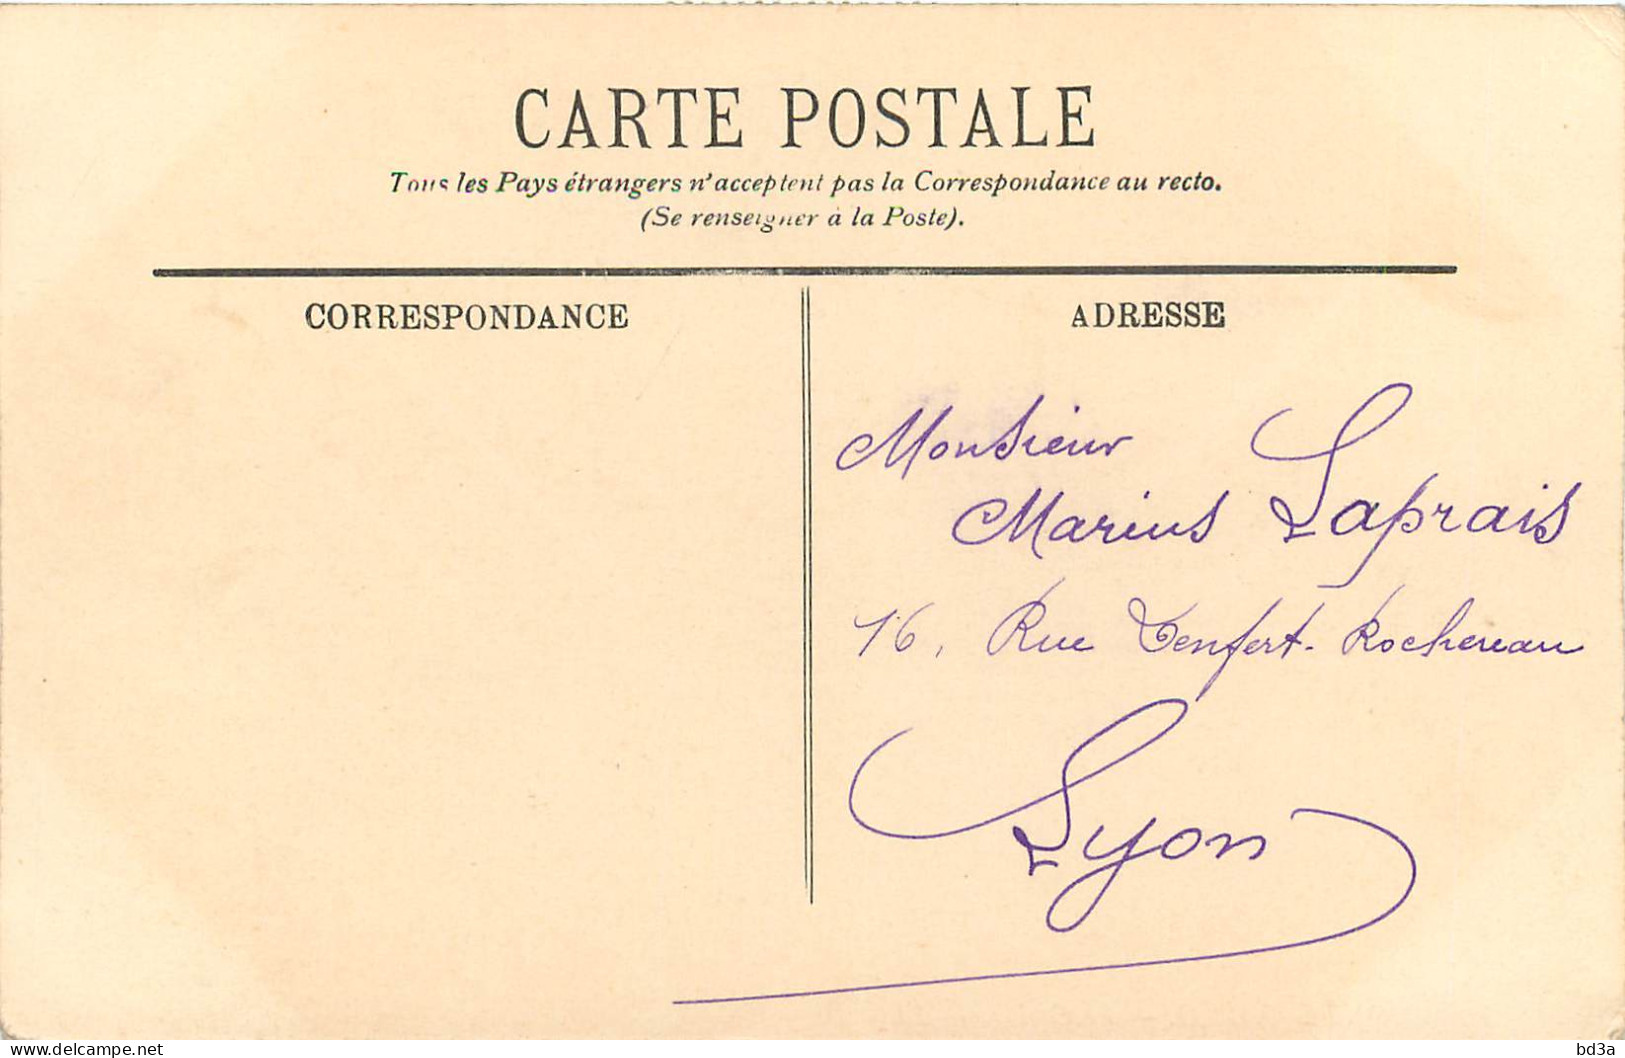 CARTE POSTALE
Tous les Pays étrangers n'acceptent pas la Correspondance au recto.
(Se renseigner à la Poste).
CORRESPONDANCE
ADRESSE
Monsieur
Marius Laprais
16, Rue Denfert-Rochereau
Lyon
www.delcampe.net
bd3a